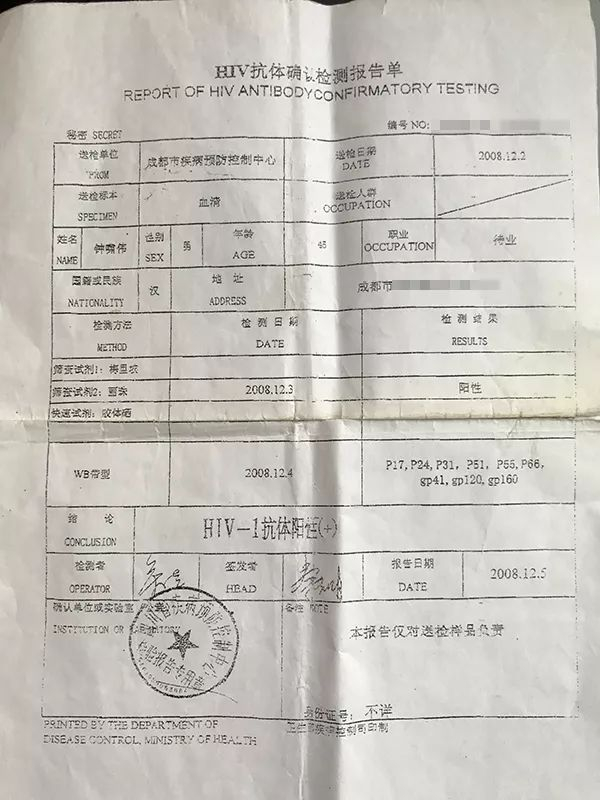 HIV抗体确认检测报告单
REPORT OF HIV ANTIBODY CONFIRMATORY TESTING
秘密 SECRET
编号 NO:
送检单位 FROM 成都市疾病预防控制中心 送检日期 DATE 2008.12.2
送检标本 SPECIMEN 血清 送检人群 OCCUPATION
姓名 NAME 钟啸伟 性别 SEX 男 年龄 AGE 45 职业 OCCUPATION 待业
国籍或民族 NATIONALITY 汉 地址 ADDRESS 成都市
检测方法 METHOD 检测日期 DATE 检测结果 RESULTS
筛查试剂1: 梅里埃
筛查试剂2: 丽珠 2008.12.3 阳性
快速试剂: 胶体硒
WB带型 2008.12.4 P17,P24,P31, P51, P55,P66,
gp41,gp120,gp160
结论 CONCLUSION HIV-1抗体阳性(+)
检测者 OPERATOR 签发者 HEAD 报告日期 DATE 2008.12.5
确认单位或实验室
INSTITUTION OR LABORATORY
疾病预防控制中心
检验报告专用章
备注 NOTE
本报告仅对送检样品负责
身份证号: 不详
PRINTED BY THE DEPARTMENT OF
DISEASE CONTROL, MINISTRY OF HEALTH
卫生部疾病控制司印制